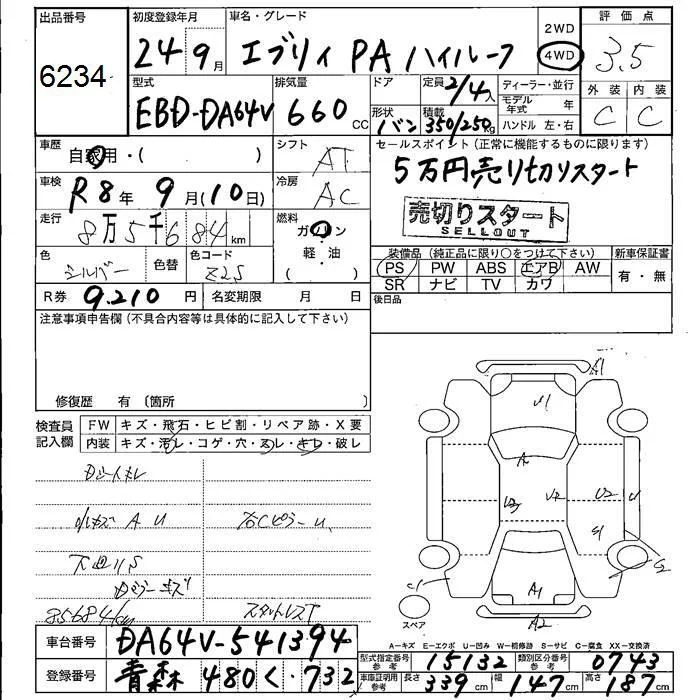 出品番号
6234
初度登録年月
24 9月
車名・グレード
エブリィ PA ハイルーフ
2WD
4WD
評価点
3.5
外装 内装
C C
型式
EBD-DA64V
排気量
660 cc
ドア
定員
2/4人
形状
バン
積載
350/250kg
ディーラー・並行
モデル年式 年
ハンドル 左・右
車歴
自家用・( )
シフト
AT
セールスポイント(正常に機能するものに限ります)
5万円売り切りスタート
売切りスタート
SELLOUT
車検
R8年 9月(10日)
冷房
AC
走行
8万5千684km
燃料
ガソリン
軽・油
( )
色
シルバー
色替
色コード
Z2S
装備品(純正品に限り○をつけて下さい)
PS PW ABS エアB AW
SR ナビ TV カワ
新車保証書
有・無
R券 9.210円
名変期限 月 日
後日品
注意事項申告欄(不具合内容等は具体的に記入して下さい)
修復歴 有(箇所
検査員記入欄
FW キズ・飛石・ヒビ割・リペア跡・X要
内装 キズ・汚レ・コゲ・穴・スレ・キレ・破レ
小キズ A U
右Cピラー U
下回りS
85684km
A1
U1
A
U2
U2
U
S1
S2
C1
A1
A2
スペア
A-キズ E-エクボ U-凹み W-補修跡 S-サビ C-腐食 XX-交換済
車台番号 DA64V-541394
登録番号 青森 480 く・732
型式指定番号参考 15132
類別区分番号参考 0743
車庫証明用参考 長さ 339cm 幅 147cm 高さ 187cm